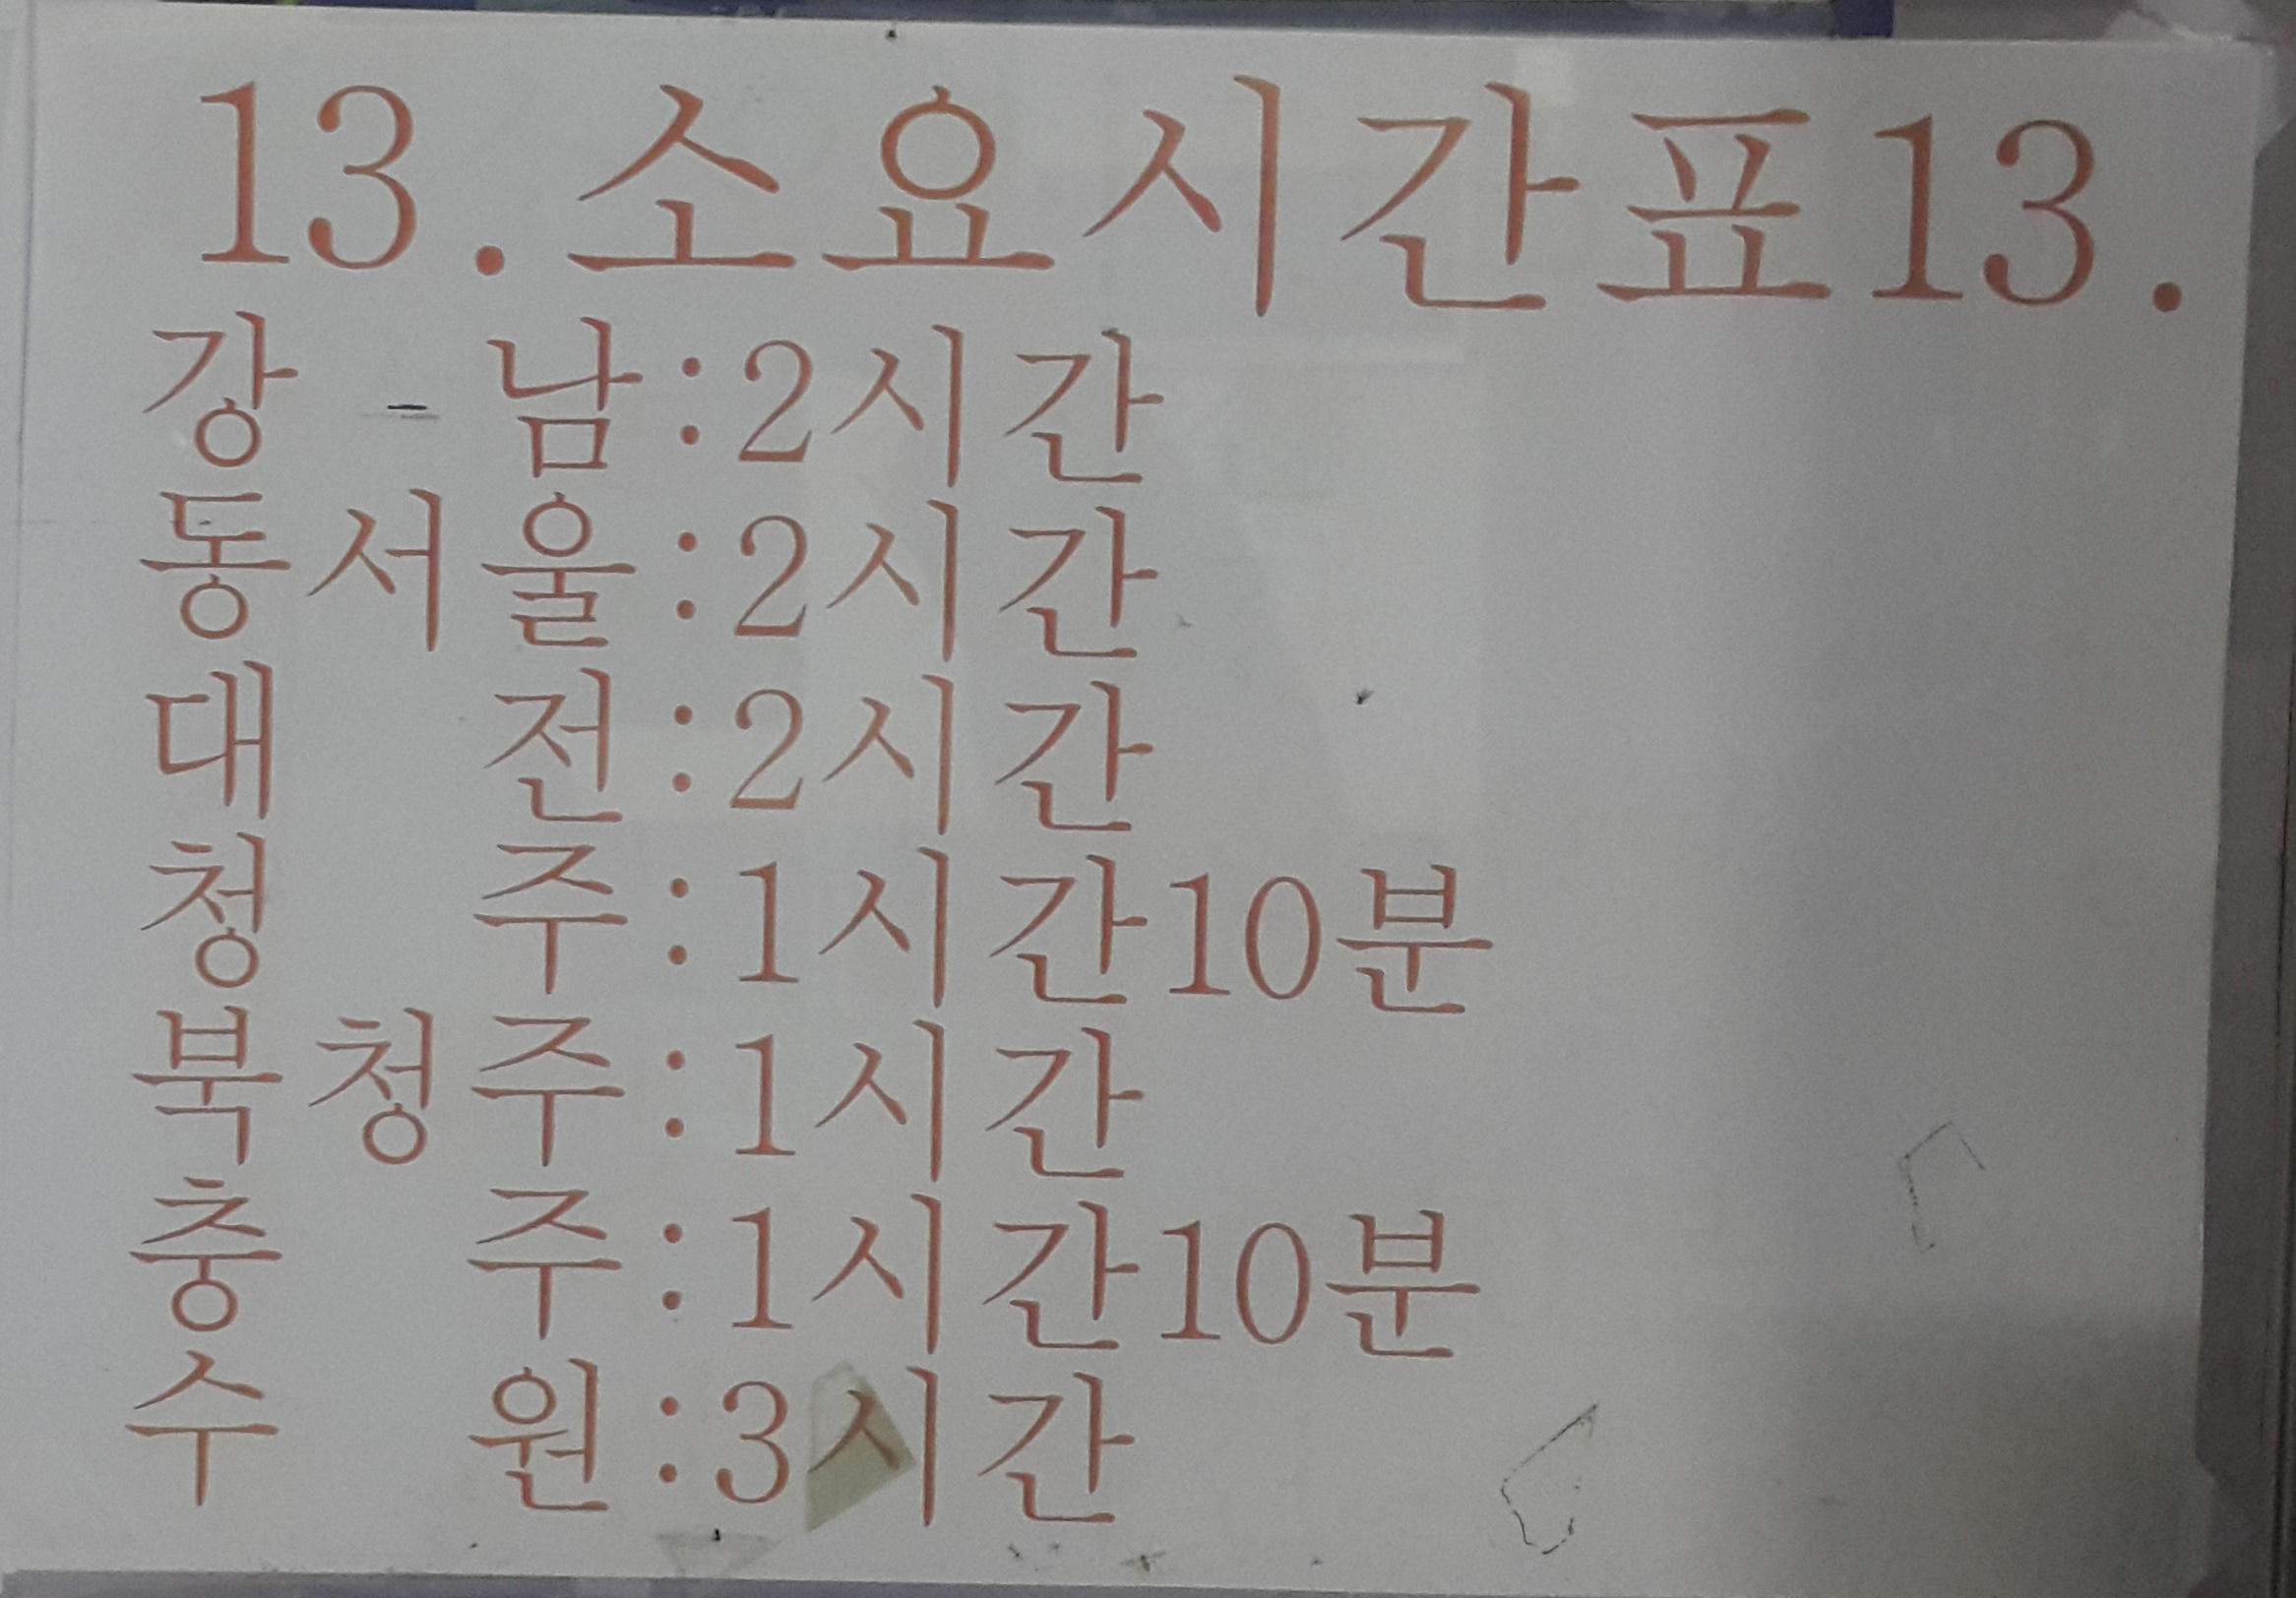 13.소요시간표13.
강 남:2시간
동서울:2시간
대 전:2시간
청 주:1시간10분
북청주:1시간
충 주:1시간10분
수 원:3시간